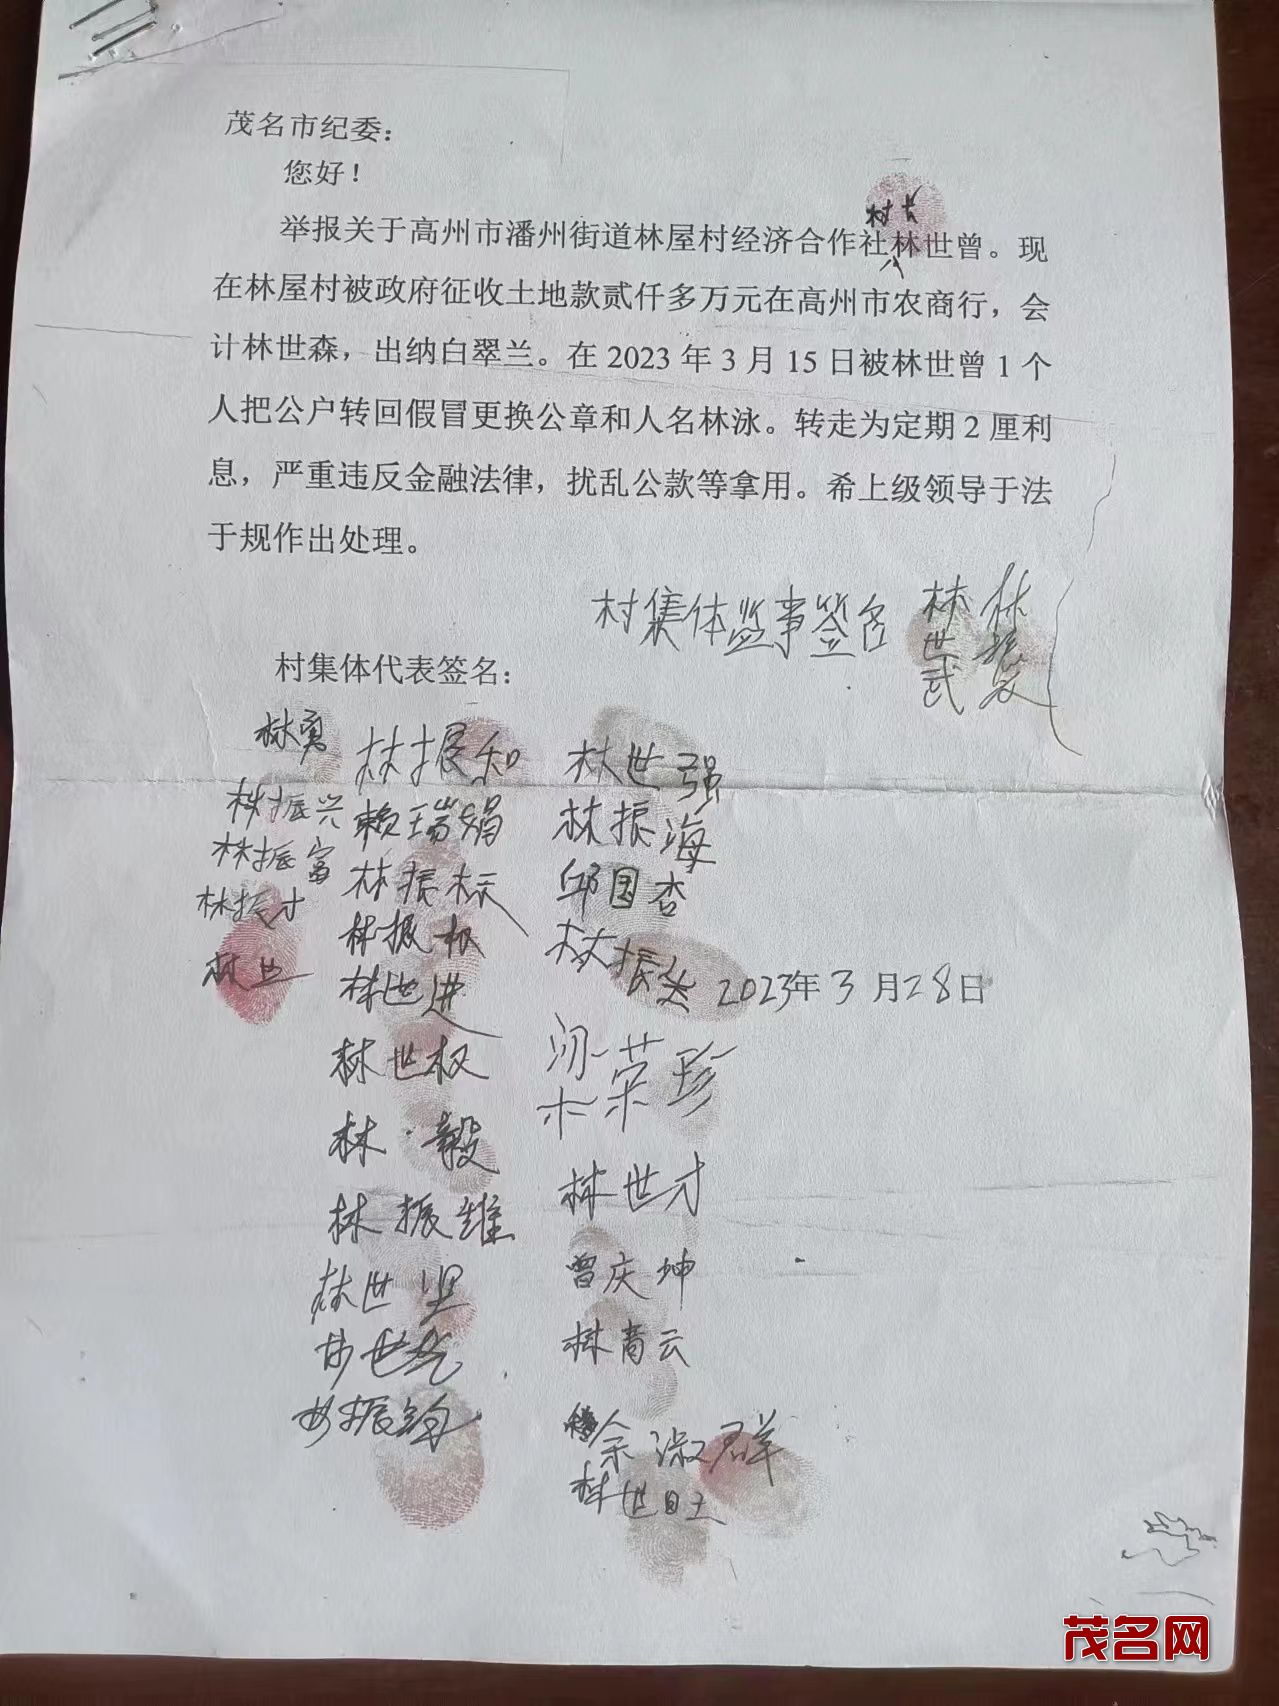 茂名市纪委：
您好！
村长
举报关于高州市潘州街道林屋村经济合作社林世曾。现
在林屋村被政府征收土地款贰仟多万元在高州市农商行，会
计林世森，出纳白翠兰。在 2023 年 3 月 15 日被林世曾 1 个
人把公户转回假冒更换公章和人名林泳。转走为定期 2 厘利
息，严重违反金融法律，扰乱公款等拿用。希上级领导于法
于规作出处理。
村集体监事签名 林世武 林振
村集体代表签名：
林勇 林振知 林世强
林振兴 赖瑞娟 林振海
林振富 林振标 邱国杏
林振才 林振权 林振
林世 林世进 2023年3月28日
林世权 梁荣珍
林毅 林世才
林振雄 曾庆坤
林世坚 林青云
世 余淑群
振 林世旺
茂名网